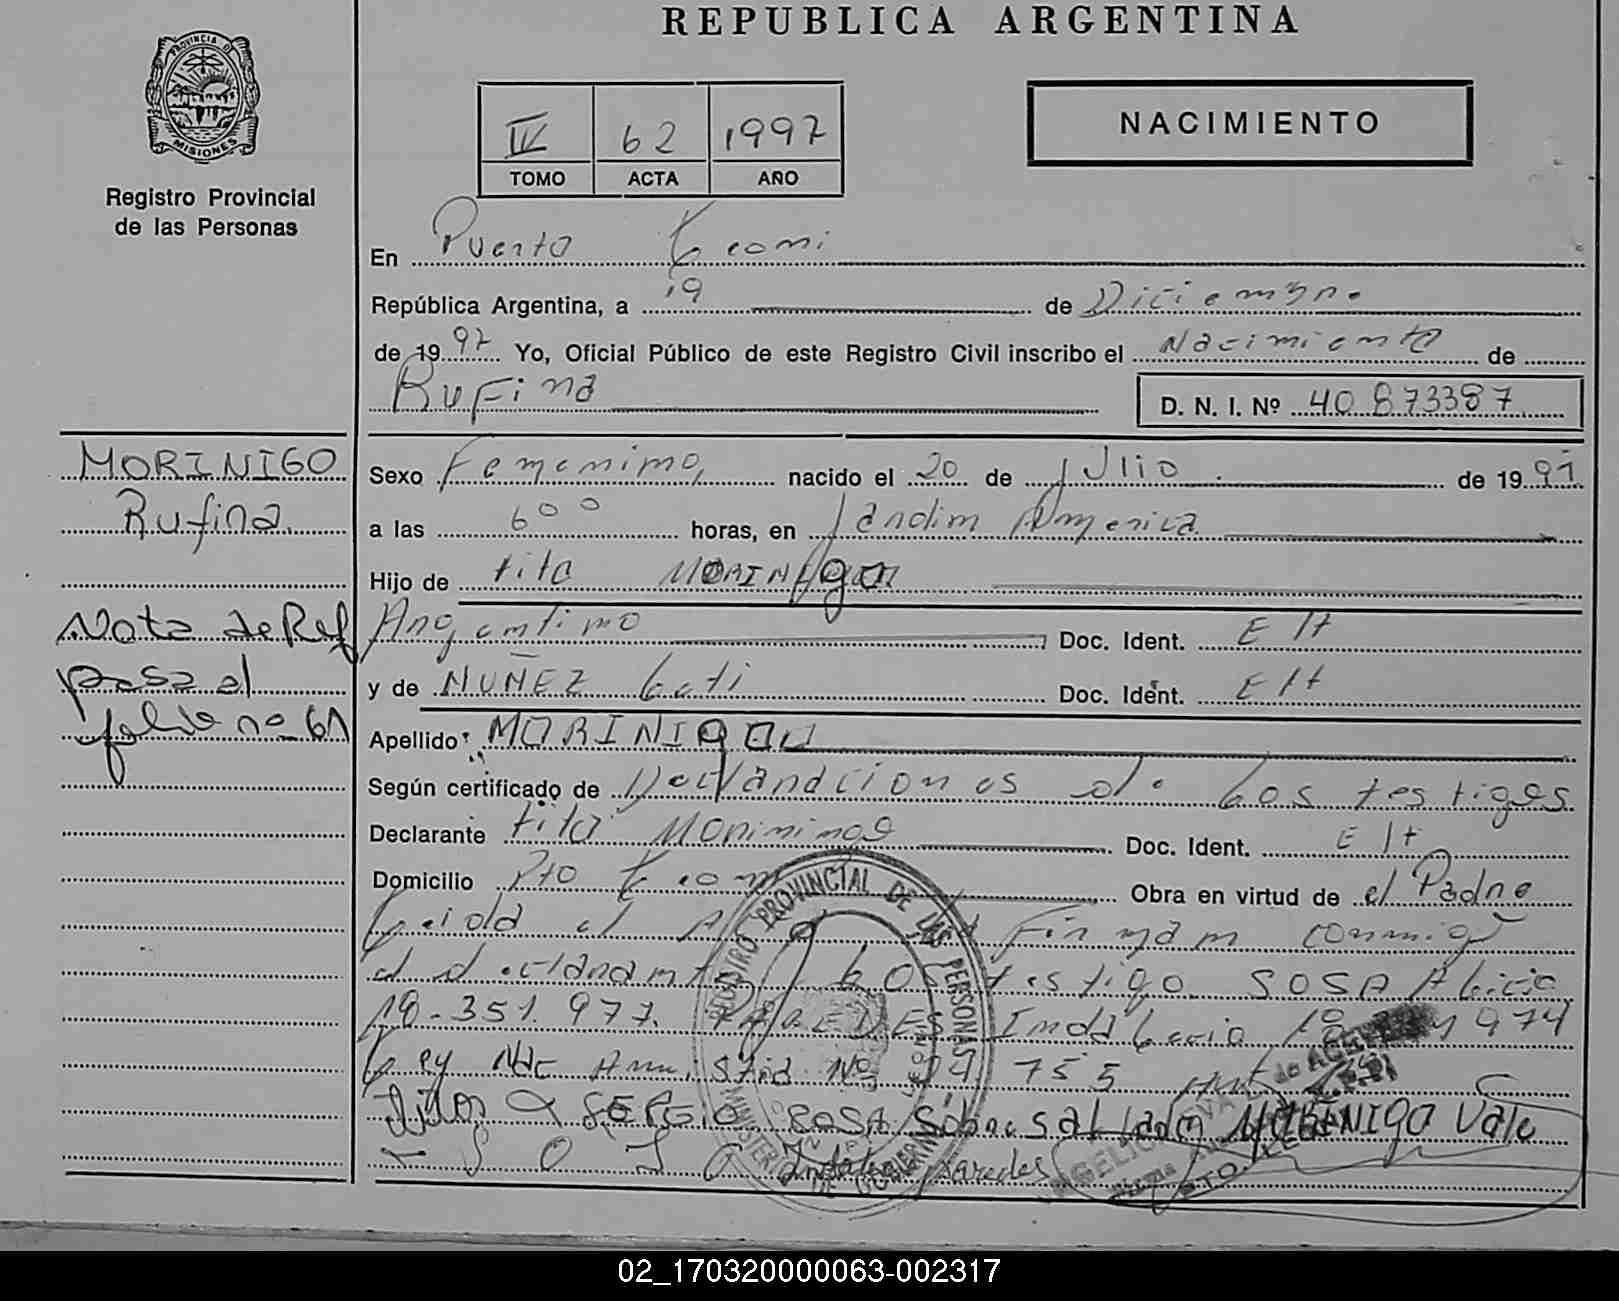 REPUBLICA ARGENTINA
PROVINCIA DE
MISIONES
Registro Provincial
de las Personas
IV 62 1997
TOMO ACTA AÑO
NACIMIENTO
En Puerto Leoni
República Argentina, a 19 de Diciembre
de 1997 Yo, Oficial Público de este Registro Civil inscribo el Nacimiento de
Rufina
D. N. I. Nº 40 873387
MORINIGO
Rufina
Nota de Ref
pasa al
folio nº 61
Sexo Femenino, nacido el 20 de Julio de 1991
a las 6 00 horas, en Jardin America
Hijo de tito MORINIgo
Argentino Doc. Ident. E/t
y de NUÑEZ Cati Doc. Ident. E/t
Apellido: MORINIgo
Según certificado de Declaraciones de Los testigos
Declarante tito Morinigo Doc. Ident. E/t
Domicilio Pto Leoni Obra en virtud de el Padre
Leida el Firman conmigo
el declarante Los testigo SOSA Alicia
18.351.977. PAREDES Indalecio
Ley Nac Amnistia Nº 24.755
SERGIO SOSA Sobre sallado MORINIGO Vale
Paredes
REGISTRO PROVINCIAL DE LAS PERSONAS
MINISTERIO DE GOBIERNO
02_170320000063-002317